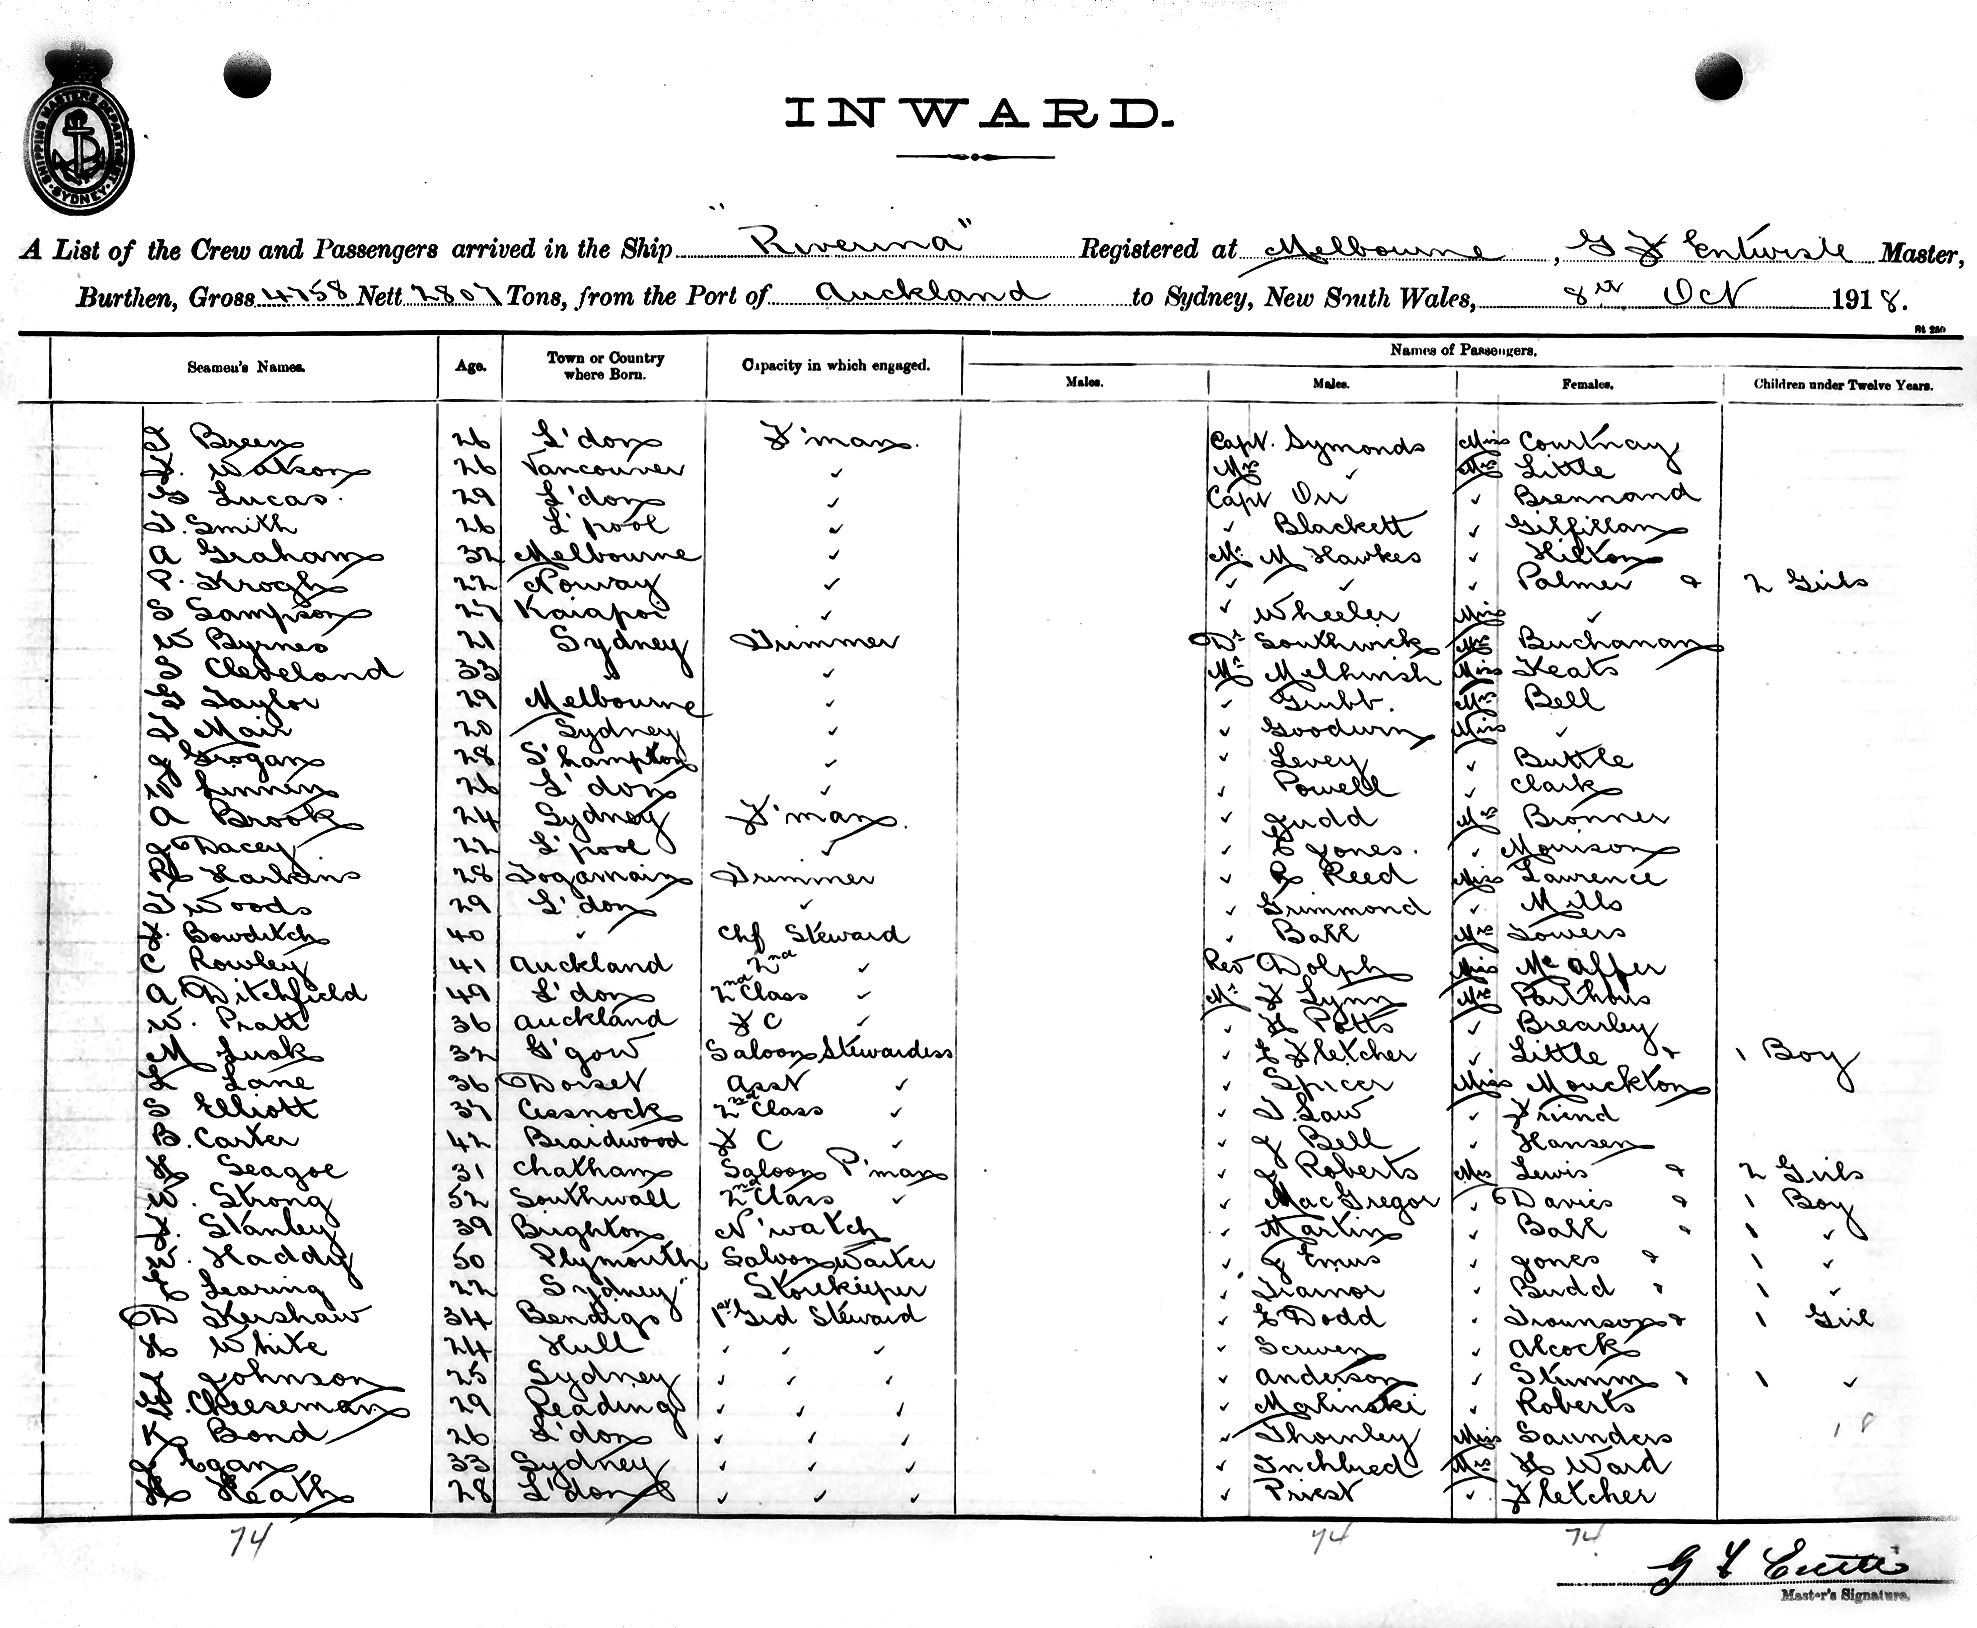 SHIPPING MASTERS DEPARTMENT SYDNEY
INWARD.
A List of the Crew and Passengers arrived in the Ship "Riverina" Registered at Melbourne, G F Entwistle Master,
Burthen, Gross 4758 Nett 2807 Tons, from the Port of Auckland to Sydney, New South Wales, 8th Oct 1918.
Seamen's Names. Age. Town or Country where Born. Capacity in which engaged. Names of Passengers.
Males. Males. Females. Children under Twelve Years.
T Breen 26 L'don F'man. Capt. Symonds Miss Courtnay
F. Watson 26 Vancouver ✓ Mrs ✓ Mrs Little
G Lucas. 29 L'don ✓ Capt Orr ✓ Brennand
T. Smith 26 L'pool ✓ ✓ Blackett ✓ Gilfillan
A Graham 32 Melbourne ✓ Mr M Hawkes ✓ Hilton
P. Krogh 22 Norway ✓ ✓ ✓ ✓ Palmer & 2 Girls
S Sampson 27 Kaiapoi ✓ ✓ Wheeler Miss ✓
W Byrnes 21 Sydney Trimmer Dr Southwick Mrs Buchanan
S Cleveland 33 " ✓ Mr Melhuish Miss Keats
G Taylor 29 Melbourne ✓ ✓ Grubb. Mrs Bell
T Mair 20 Sydney ✓ ✓ Goodwin Miss ✓
J Grogan 28 S'hampton ✓ ✓ Levey ✓ Buttle
W 26 L'don ✓ ✓ Powell ✓ Clark
A Brook 24 Sydney F'man. ✓ Judd Mrs Bronner
J Dacey 22 L'pool ✓ ✓ E Jones. ✓ Morrison
R Harkins 28 Trimmer ✓ R Reed Miss Laurence
T Woods 29 L'don ✓ ✓ Grimmond ✓ Mills
F. Bowditch 40 ✓ Chf Steward ✓ Ball Mrs Towers
C Rowley 41 Auckland 2nd ✓ Rev Dolph Miss McAffer
A Ditchfield 49 L'don 2nd Class ✓ Mr F Lynn Mrs
W. Pratt 36 Auckland F C ✓ ✓ H Potts ✓ Brearley
M Lusk 32 G'gow Saloon Stewardess ✓ E Fletcher ✓ Little & 1 Boy
L Lane 36 Dorset Asst ✓ ✓ Spicer Miss Mouckton
S Elliott 37 Cessnock 2nd Class ✓ ✓ T. Law ✓ Friend
B. Carter 42 Braidwood F C ✓ ✓ J Bell ✓ Hansen
H Seagoe 31 Chatham Saloon P'man ✓ J Roberts Mrs Lewis & 2 Girls
W. Strong 52 Southwall 2nd Class ✓ ✓ MacGregor ✓ Davies & 1 Boy
F. Stanley 39 Brighton N'watch ✓ Martin ✓ Ball " 1 ✓
W. Haddy 50 Plymouth Saloon Waiter ✓ J Emus ✓ Jones & 1 ✓
E Learing 22 Sydney Storekeeper ✓ Trainor ✓ Budd " 1 ✓
D Kershaw 34 Bendigo 1st Grd Steward ✓ E Dodd ✓ Trounson & 1 Girl
H White 24 Hull ✓ ✓ ✓ ✓ Scriven ✓ Alcock
J Johnson 25 Sydney ✓ ✓ ✓ ✓ Anderson ✓ Stumm & 1 ✓
G. Cheeseman 29 Reading ✓ ✓ ✓ ✓ Malinski ✓ Roberts
K Bond 26 L'don ✓ ✓ ✓ ✓ Thornley Miss Saunders 18
J Egan 33 Sydney ✓ ✓ ✓ ✓ Inchbred Mrs H Ward
H Heath 28 L'don ✓ ✓ ✓ ✓ Priest ✓ Fletcher
74 74 74
Master's Signature.